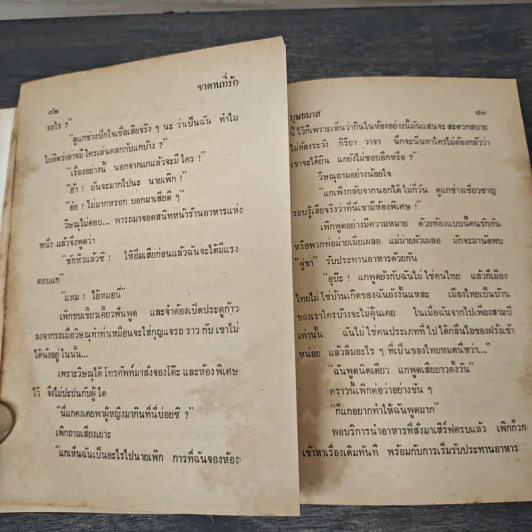 ๘๒
ซาตานที่รัก
อะไร ?"
"ดูแกช่างปักใจเชื่อเสียจริง ๆ นะ ว่าเป็นฉัน ทำไม
ไม่คิดว่าอาจมีใครเล่นตลกกับแกบ้าง ?"
"เรื่องอย่างนี้ นอกจากแกแล้วจะมีใคร !"
"ฮ้า ! มันจะมากไปนะ นายเพิก !"
"อ๋อ ! ไม่มากหรอก บอกมาเสียดี ๆ"
วิษณุไม่ตอบ... พารถมาจอดสนิทหน้าร้านอาหารแห่ง
หนึ่ง แล้วจึงพูดว่า
"ชักหิวแล้วซิ ! ให้อิ่มเสียก่อนแล้วฉันจะได้มีแรง
ตอบแก"
"แหม ! ไอ้หมอนี่"
เพิกขบเขี้ยวเคี้ยวฟันพูด และจำต้องเปิดประตูก้าว
ลงจากรถเมื่อวิษณุทำท่าเหมือนจะใส่กุญแจรถ ราว กับ เขาไม่
ได้นั่งอยู่ในนั้น...
เพราะวิษณุได้ โทรศัพท์มาสั่งจองโต๊ะ และห้องพิเศษ
ไว้ จึงไม่ปะปนกับผู้ใด
"นี่แกคงเคยพาผู้หญิงมากินที่นี่บ่อยซิ ?"
เพิกถามเสียงเยาะ
"แกเห็นฉันเป็นอะไรไปนายเพิก การที่ฉันจองห้อง
บุษยมาส
๘๓
นี้ ไว้ก็เพราะเห็นว่ากินในห้องอย่างนี้มันแสนจะ สะดวกสบาย
ไม่ต้องระวัง กิริยา วาจา นึกจะนินทาใครไม่ต้องกลัวว่า
เขาจะได้ยิน แกยังไม่ชอบอีกหรือ ?"
วิษณุถามอย่างน้อยใจ
"แกเพิ่งกลับจากนอกได้ ไม่กี่วัน ดูแกช่างเชี่ยวชาญ
รอบรู้เสียจริงว่าที่นี่เขามีห้องพิเศษ !"
เพิกพูดอย่างมีความหมาย ด้วยห้องแบบนี้คนรักกัน
หรือพวกพ่อม่ายเมียเผลอ แม่ม่ายผัวเผลอ มักจะมานัดพบ
"คู่ขา" รับประทานอาหารด้วยกัน
"อุ๊บ๊ะ ! แกพูดยังกับฉันไม่ ใช่คนไทย แล้วก็เมือง
ไทยไม่ ใช่บ้านเกิดของฉันยังงั้นแหละ เมืองไทยเป็นบ้าน
ของเราใครบ้างจะไม่คุ้นเคย ในเมื่อฉันจากไปเพียงสามปี
เท่านั้น ฉันไม่ ใช่คนประเภทที่ ไป ได้กลิ่นไอของฝรั่งเข้า
หน่อย แล้วลืมอะไร ๆ ที่เป็นของไทยหมดนี่หว่า..."
"ฉันพูดนิดเดียว แกพูดเสียยาวตั้งวัน"
คราวนี้เพิกต่อว่าอย่างขัน ๆ
"ก็แกอยากทำให้ฉันพูดมาก"
พอบริการนำอาหารที่สั่งมาเสิร์ฟครบแล้ว เพิกก็วก
เข้าหาเรื่องเดิมทันที พร้อมกับการเริ่มรับประทานอาหาร